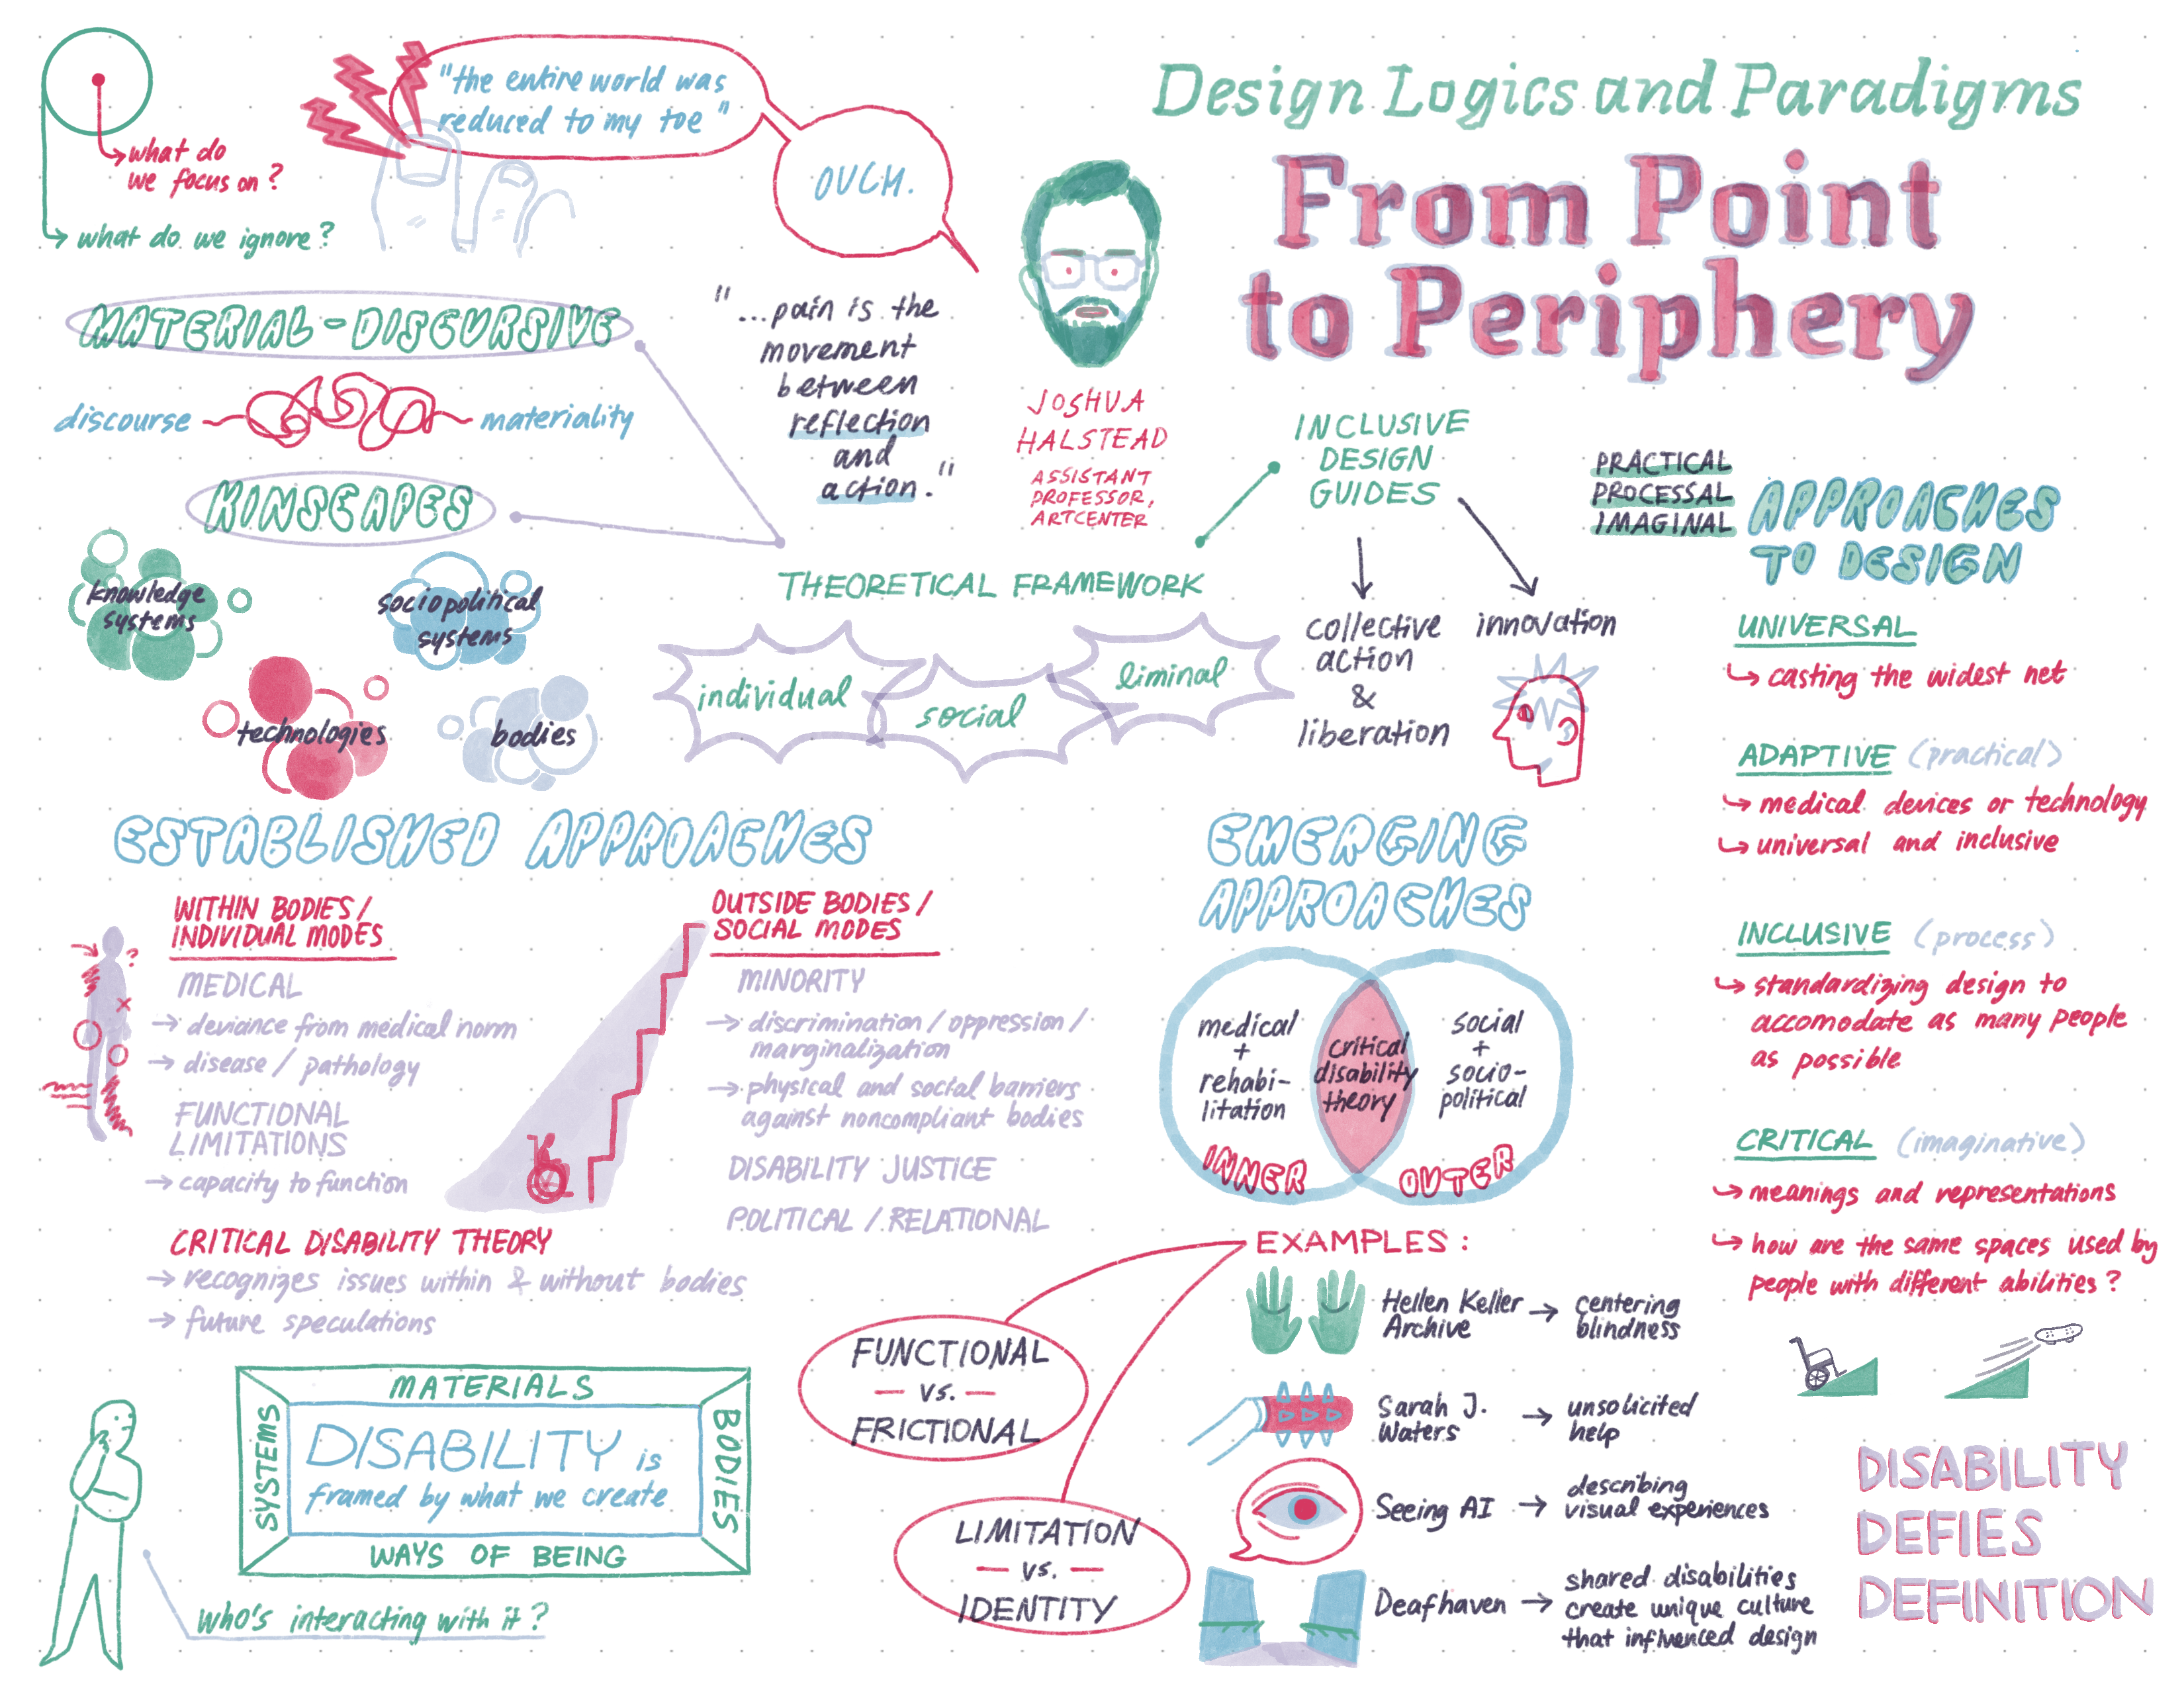 Design Logics and Paradigms
From Point
to Periphery
what do
we focus on?
what do we ignore?
"the entire world was
reduced to my toe"
OUCH.
"...pain is the
movement
between
reflection
and
action."
JOSHUA
HALSTEAD
ASSISTANT
PROFESSOR,
ARTCENTER
MATERIAL-DISCURSIVE
discourse
materiality
KINSCAPES
knowledge
systems
sociopolitical
systems
technologies
bodies
THEORETICAL FRAMEWORK
individual
social
liminal
INCLUSIVE
DESIGN
GUIDES
collective
action
&
liberation
innovation
PRACTICAL
PROCESSAL
IMAGINAL
APPROACHES
TO DESIGN
UNIVERSAL
casting the widest net
ADAPTIVE (practical)
medical devices or technology
universal and inclusive
INCLUSIVE (process)
standardizing design to
accomodate as many people
as possible
CRITICAL (imaginative)
meanings and representations
how are the same spaces used by
people with different abilities?
ESTABLISHED APPROACHES
WITHIN BODIES/
INDIVIDUAL MODES
MEDICAL
→ deviance from medical norm
→ disease / pathology
FUNCTIONAL
LIMITATIONS
→ capacity to function
OUTSIDE BODIES/
SOCIAL MODES
MINORITY
→ discrimination / oppression /
marginalization
→ physical and social barriers
against noncompliant bodies
DISABILITY JUSTICE
POLITICAL / RELATIONAL
CRITICAL DISABILITY THEORY
→ recognizes issues within & without bodies
→ future speculations
EMERGING
APPROACHES
medical
+
rehabi-
litation
INNER
critical
disability
theory
social
+
socio-
political
OUTER
EXAMPLES:
Hellen Keller
Archive
→ centering
blindness
Sarah J.
Waters
→ unsolicited
help
Seeing AI
→ describing
visual experiences
Deafhaven
→ shared disabilities
create unique culture
that influenced design
FUNCTIONAL
— vs. —
FRICTIONAL
LIMITATION
— vs. —
IDENTITY
MATERIALS
SYSTEMS
DISABILITY is
framed by what we create
BODIES
WAYS OF BEING
who's interacting with it?
DISABILITY
DEFIES
DEFINITION